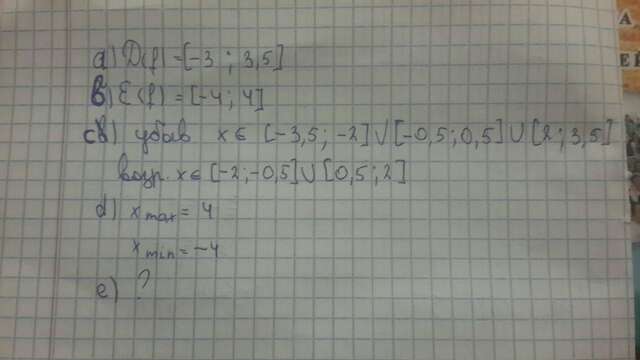 a) D(f)=[-3 ; 3,5]
b) E(f) = [-4; 4]
c) убыв x∈ [-3,5; -2]∪[-0,5; 0,5]∪[2; 3,5]
возр. x∈[-2; -0,5]∪[0,5; 2]
d) x max = 4
x min = -4
e) ?